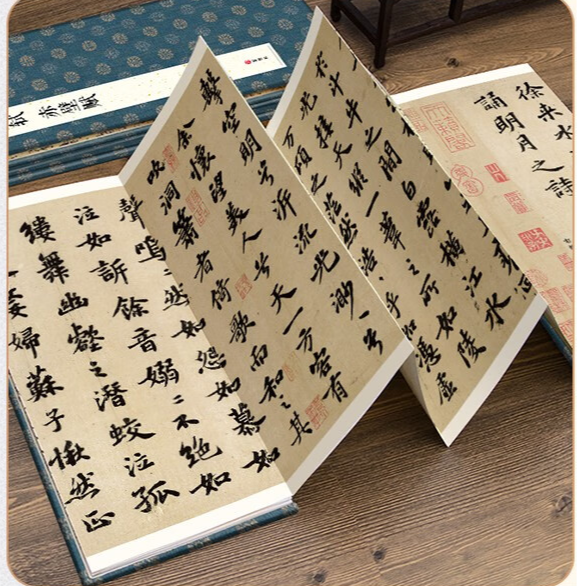 徐来水
誦明月之詩
於斗牛之間白露橫江水
光接天縱一葦之所如陵
万頃之茫然浩〻乎如憑虛
擊空明兮泝流光渺〻兮
余懷望美人兮天一方客有
吹洞簫者倚歌而和之其
聲嗚〻然如怨如慕如
泣如訴餘音嫋〻不絕如
縷舞幽壑之潛蛟泣孤
嫠婦蘇子愀然正
軾 赤壁賦